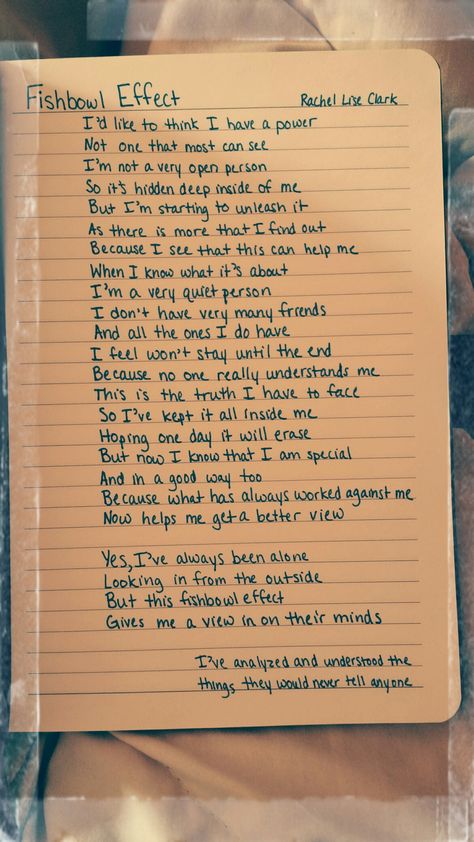 Fishbowl Effect
Rachel Lise Clark
I'd like to think I have a power
Not one that most can see
I'm not a very open person
So it's hidden deep inside of me
But I'm starting to unleash it
As there is more that I find out
Because I see that this can help me
When I know what it's about
I'm a very quiet person
I don't have very many friends
And all the ones I do have
I feel won't stay until the end
Because no one really understands me
This is the truth I have to face
So I've kept it all inside me
Hoping one day it will erase
But now I know that I am special
And in a good way too
Because what has always worked against me
Now helps me get a better view
Yes, I've always been alone
Looking in from the outside
But this fishbowl effect
Gives me a view in on their minds
I've analyzed and understood the
things they would never tell anyone